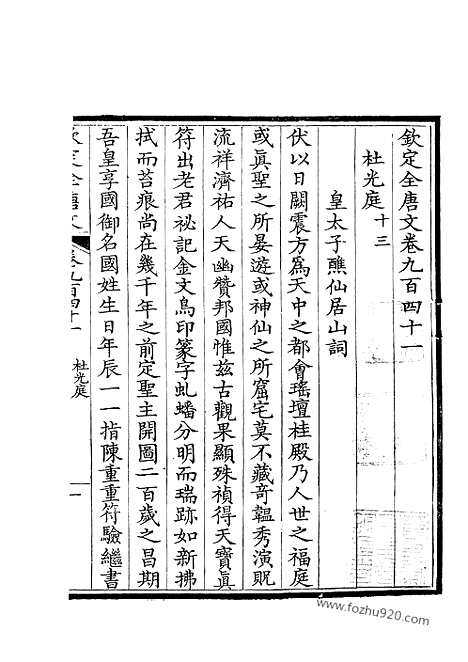 欽定全唐文卷九百四十一
杜光庭十三
皇太子醮仙居山詞
伏以日闢震方爲天中之都會瑤壇桂殿乃人世之福庭
或眞聖之所晏遊或神仙之所窟宅莫不藏奇韞秀演貺
流祥濟祐人天幽贊邦國惟茲古觀果顯殊禎得天寶眞
符出老君祕記金文鳥印篆字虬蟠分明而瑞跡如新拂
拭而苔痕尚在幾千年之前定聖主開圖二百歲之昌期
吾皇享國御名國姓生日年辰一一指陳重重符驗繼書
欽定全唐文 卷九百四十一 杜光庭 一
www.fozhu920.com